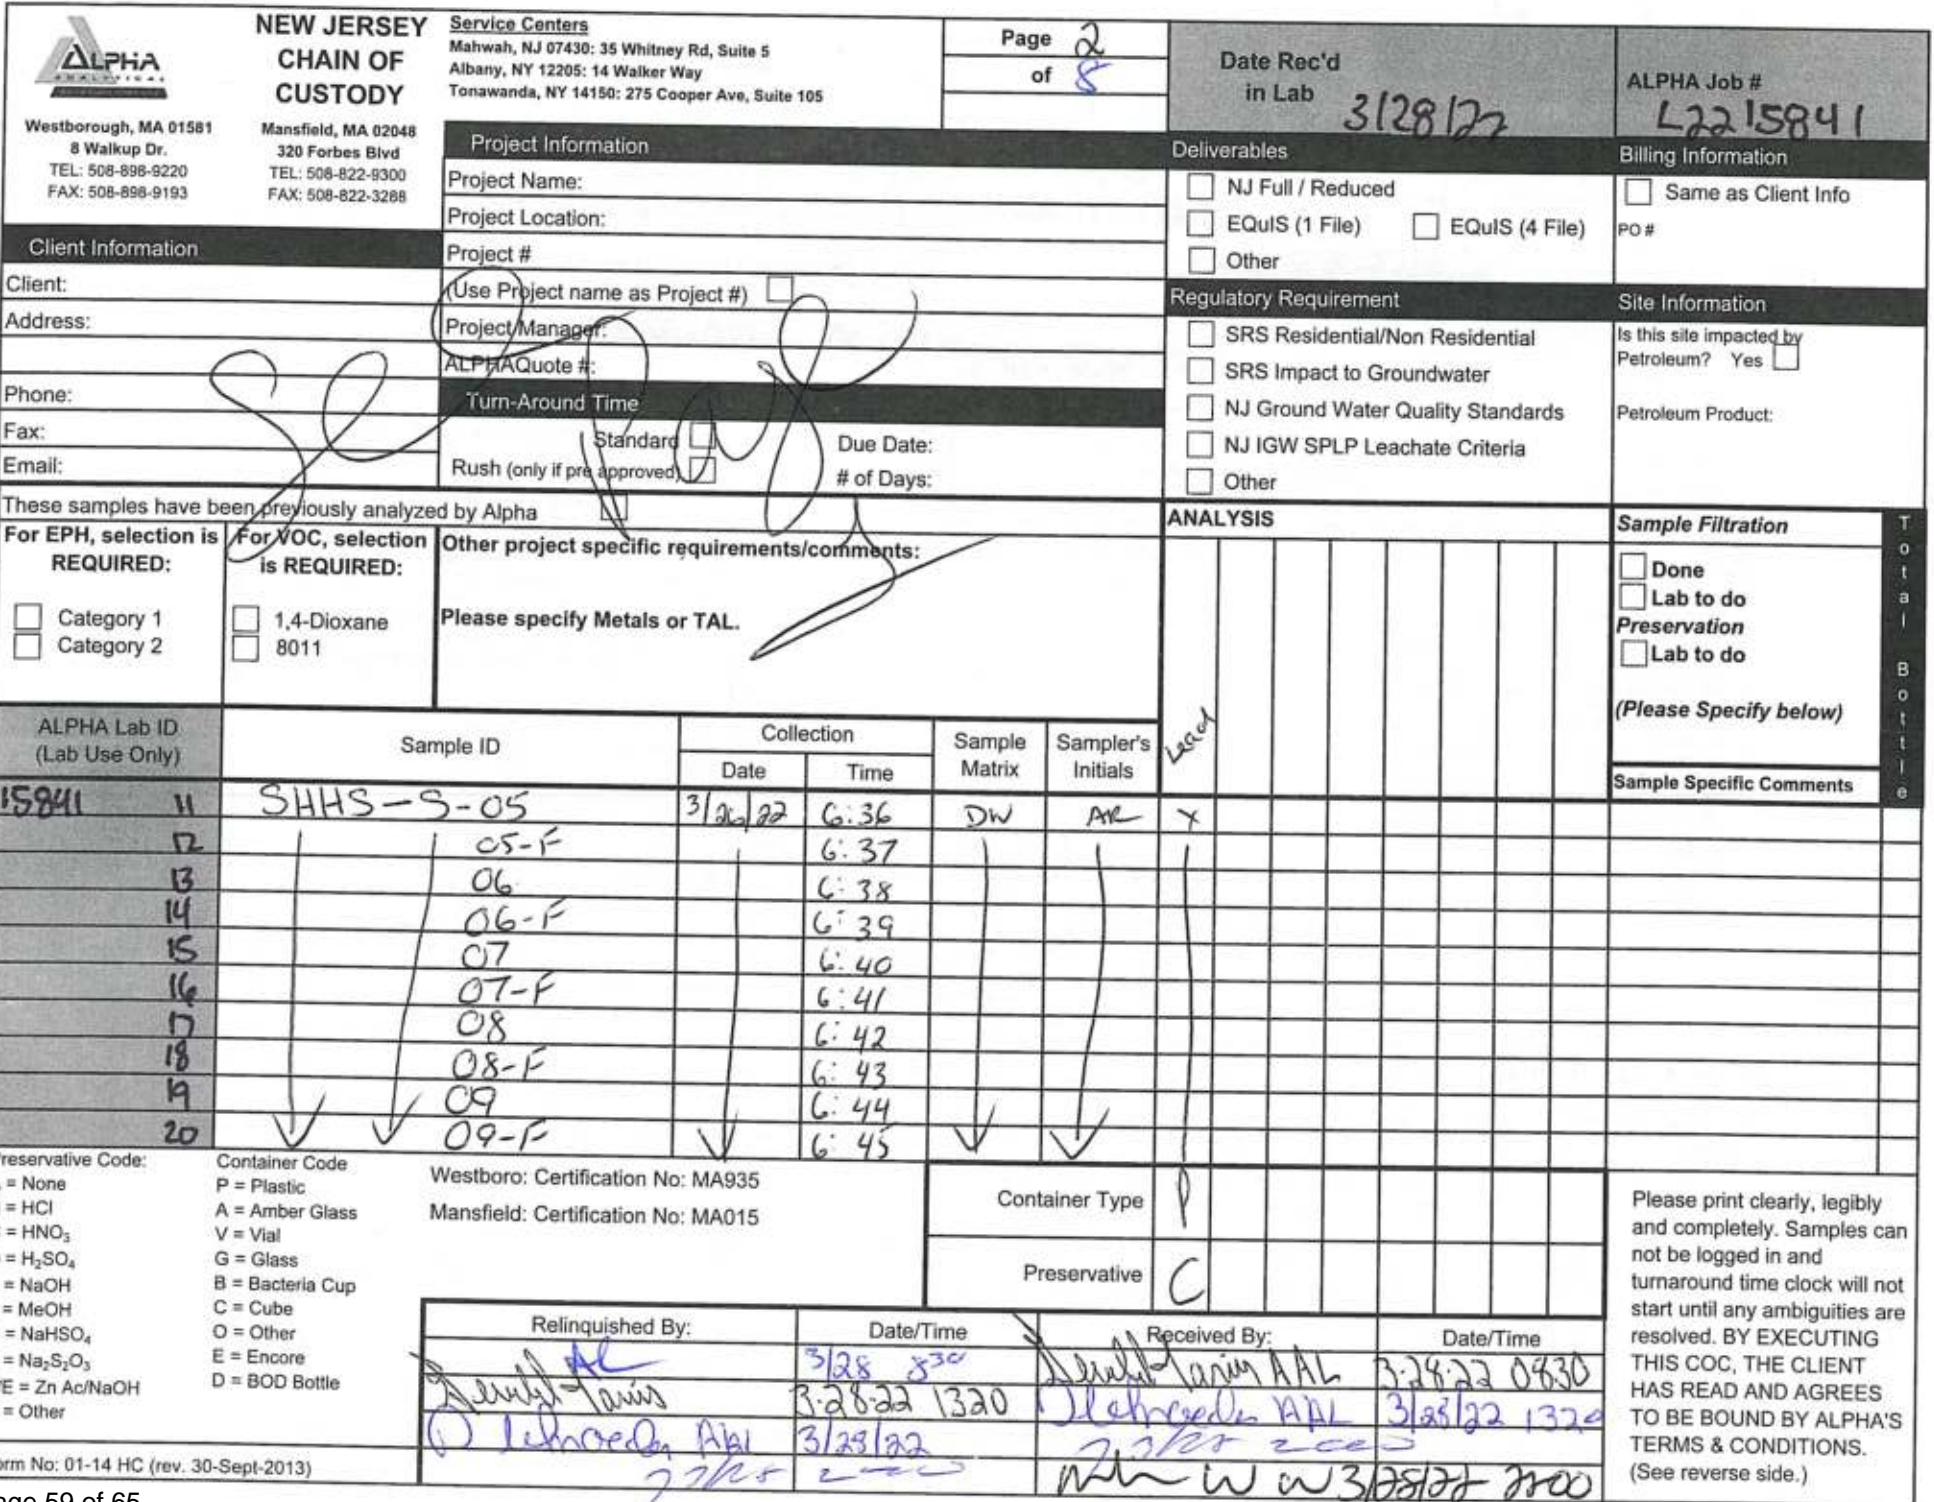 ALPHA
ANALYTICAL
Westborough, MA 01581
8 Walkup Dr.
TEL: 508-898-9220
FAX: 508-898-9193
NEW JERSEY
CHAIN OF
CUSTODY
Mansfield, MA 02048
320 Forbes Blvd
TEL: 508-822-9300
FAX: 508-822-3288
Service Centers
Mahwah, NJ 07430: 35 Whitney Rd, Suite 5
Albany, NY 12205: 14 Walker Way
Tonawanda, NY 14150: 275 Cooper Ave, Suite 105
Page 2
of 8
Date Rec'd
in Lab 3/28/22
ALPHA Job #
L2215841
Client Information
Client:
Address:
Phone:
Fax:
Email:
Project Information
Project Name:
Project Location:
Project #
(Use Project name as Project #)
Project Manager:
ALPHAQuote #:
Turn-Around Time
Standard Due Date:
Rush (only if pre approved) # of Days:
Deliverables
NJ Full / Reduced
EQuIS (1 File) EQuIS (4 File)
Other
Regulatory Requirement
SRS Residential/Non Residential
SRS Impact to Groundwater
NJ Ground Water Quality Standards
NJ IGW SPLP Leachate Criteria
Other
Billing Information
Same as Client Info
PO #
Site Information
Is this site impacted by
Petroleum? Yes
Petroleum Product:
These samples have been previously analyzed by Alpha
For EPH, selection is
REQUIRED:
Category 1
Category 2
For VOC, selection
is REQUIRED:
1,4-Dioxane
8011
Other project specific requirements/comments:
Please specify Metals or TAL.
ANALYSIS
Lead
Sample Filtration
Done
Lab to do
Preservation
Lab to do
(Please Specify below)
Total Bottle
ALPHA Lab ID
(Lab Use Only)
Sample ID
Collection
Date Time
Sample
Matrix
Sampler's
Initials
Sample Specific Comments
15841 11 SHHS-S-05 3/26/22 6:36 DW AR X
12 05-F 6:37
13 06 6:38
14 06-F 6:39
15 07 6:40
16 07-F 6:41
17 08 6:42
18 08-F 6:43
19 09 6:44
20 09-F 6:45
reservative Code:
= None
= HCl
= HNO₃
= H₂SO₄
= NaOH
= MeOH
= NaHSO₄
= Na₂S₂O₃
/E = Zn Ac/NaOH
= Other
Container Code
P = Plastic
A = Amber Glass
V = Vial
G = Glass
B = Bacteria Cup
C = Cube
O = Other
E = Encore
D = BOD Bottle
Westboro: Certification No: MA935
Mansfield: Certification No: MA015
Container Type P
Preservative C
Relinquished By: Date/Time Received By: Date/Time
3/28 830 AAL 3-28-22 0830
3-28-22 1320 AAL 3/28/22 1320
AAL 3/28/22
3/28/22 2200
Please print clearly, legibly
and completely. Samples can
not be logged in and
turnaround time clock will not
start until any ambiguities are
resolved. BY EXECUTING
THIS COC, THE CLIENT
HAS READ AND AGREES
TO BE BOUND BY ALPHA'S
TERMS & CONDITIONS.
(See reverse side.)
orm No: 01-14 HC (rev. 30-Sept-2013)
age 59 of 65